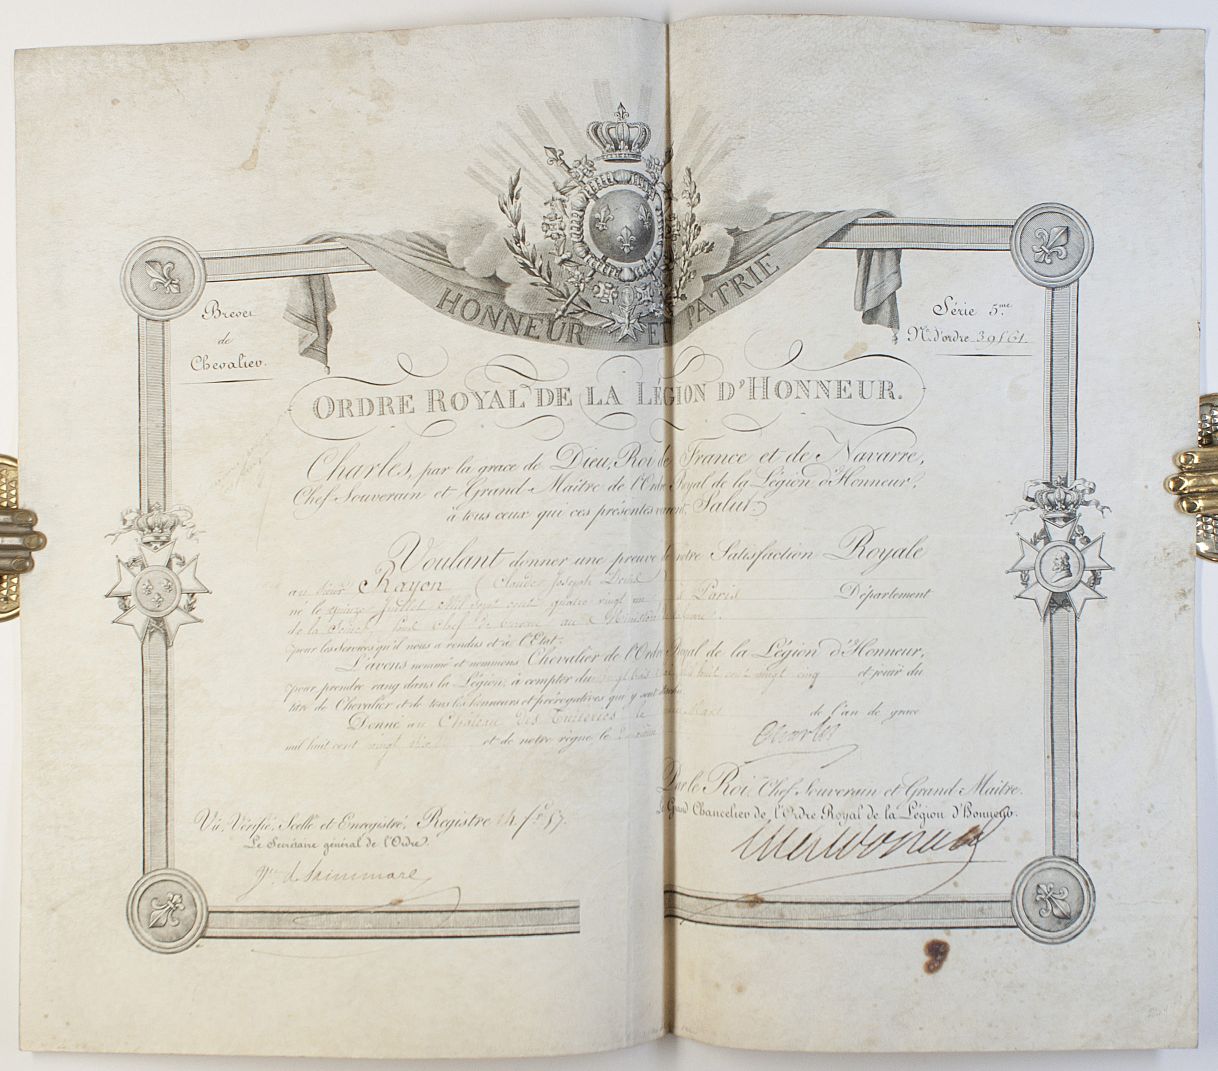 HONNEUR ET PATRIE
Brevet
de
Chevalier.
Série 5.me
N.o d'ordre 39161
ORDRE ROYAL DE LA LÉGION D'HONNEUR.
Charles, par la grace de Dieu, Roi de France et de Navarre,
Chef Souverain et Grand-Maître de l'Ordre Royal de la Légion d'Honneur,
à tous ceux qui ces présentes verront, Salut.
Voulant donner une preuve de notre Satisfaction Royale
au Sieur Rayon (Claude Joseph
né le quinze Juillet Mil Sept cent quatre vingt un à Paris Département
de la Seine, Chef de Bureau au Ministère
pour les Services qu'il nous a rendus et à l'Etat;
L'avons nommé et nommons Chevalier de l'Ordre Royal de la Légion d'Honneur,
pour prendre rang dans la Légion, à compter du mil huit cent vingt cinq et jouir du
titre de Chevalier et de tous les honneurs et prérogatives qui y sont attachés.
Donné au Château des Tuileries le Mars de l'an de grace
mil huit cent vingt et de notre règne le
Charles
Par le Roi, Chef Souverain et Grand-Maître.
Le Grand Chancelier de l'Ordre Royal de la Légion d'Honneur.
Vu, Vérifié, Scellé et Enregistré, Registre f.o 57.
Le Secrétaire général de l'Ordre.